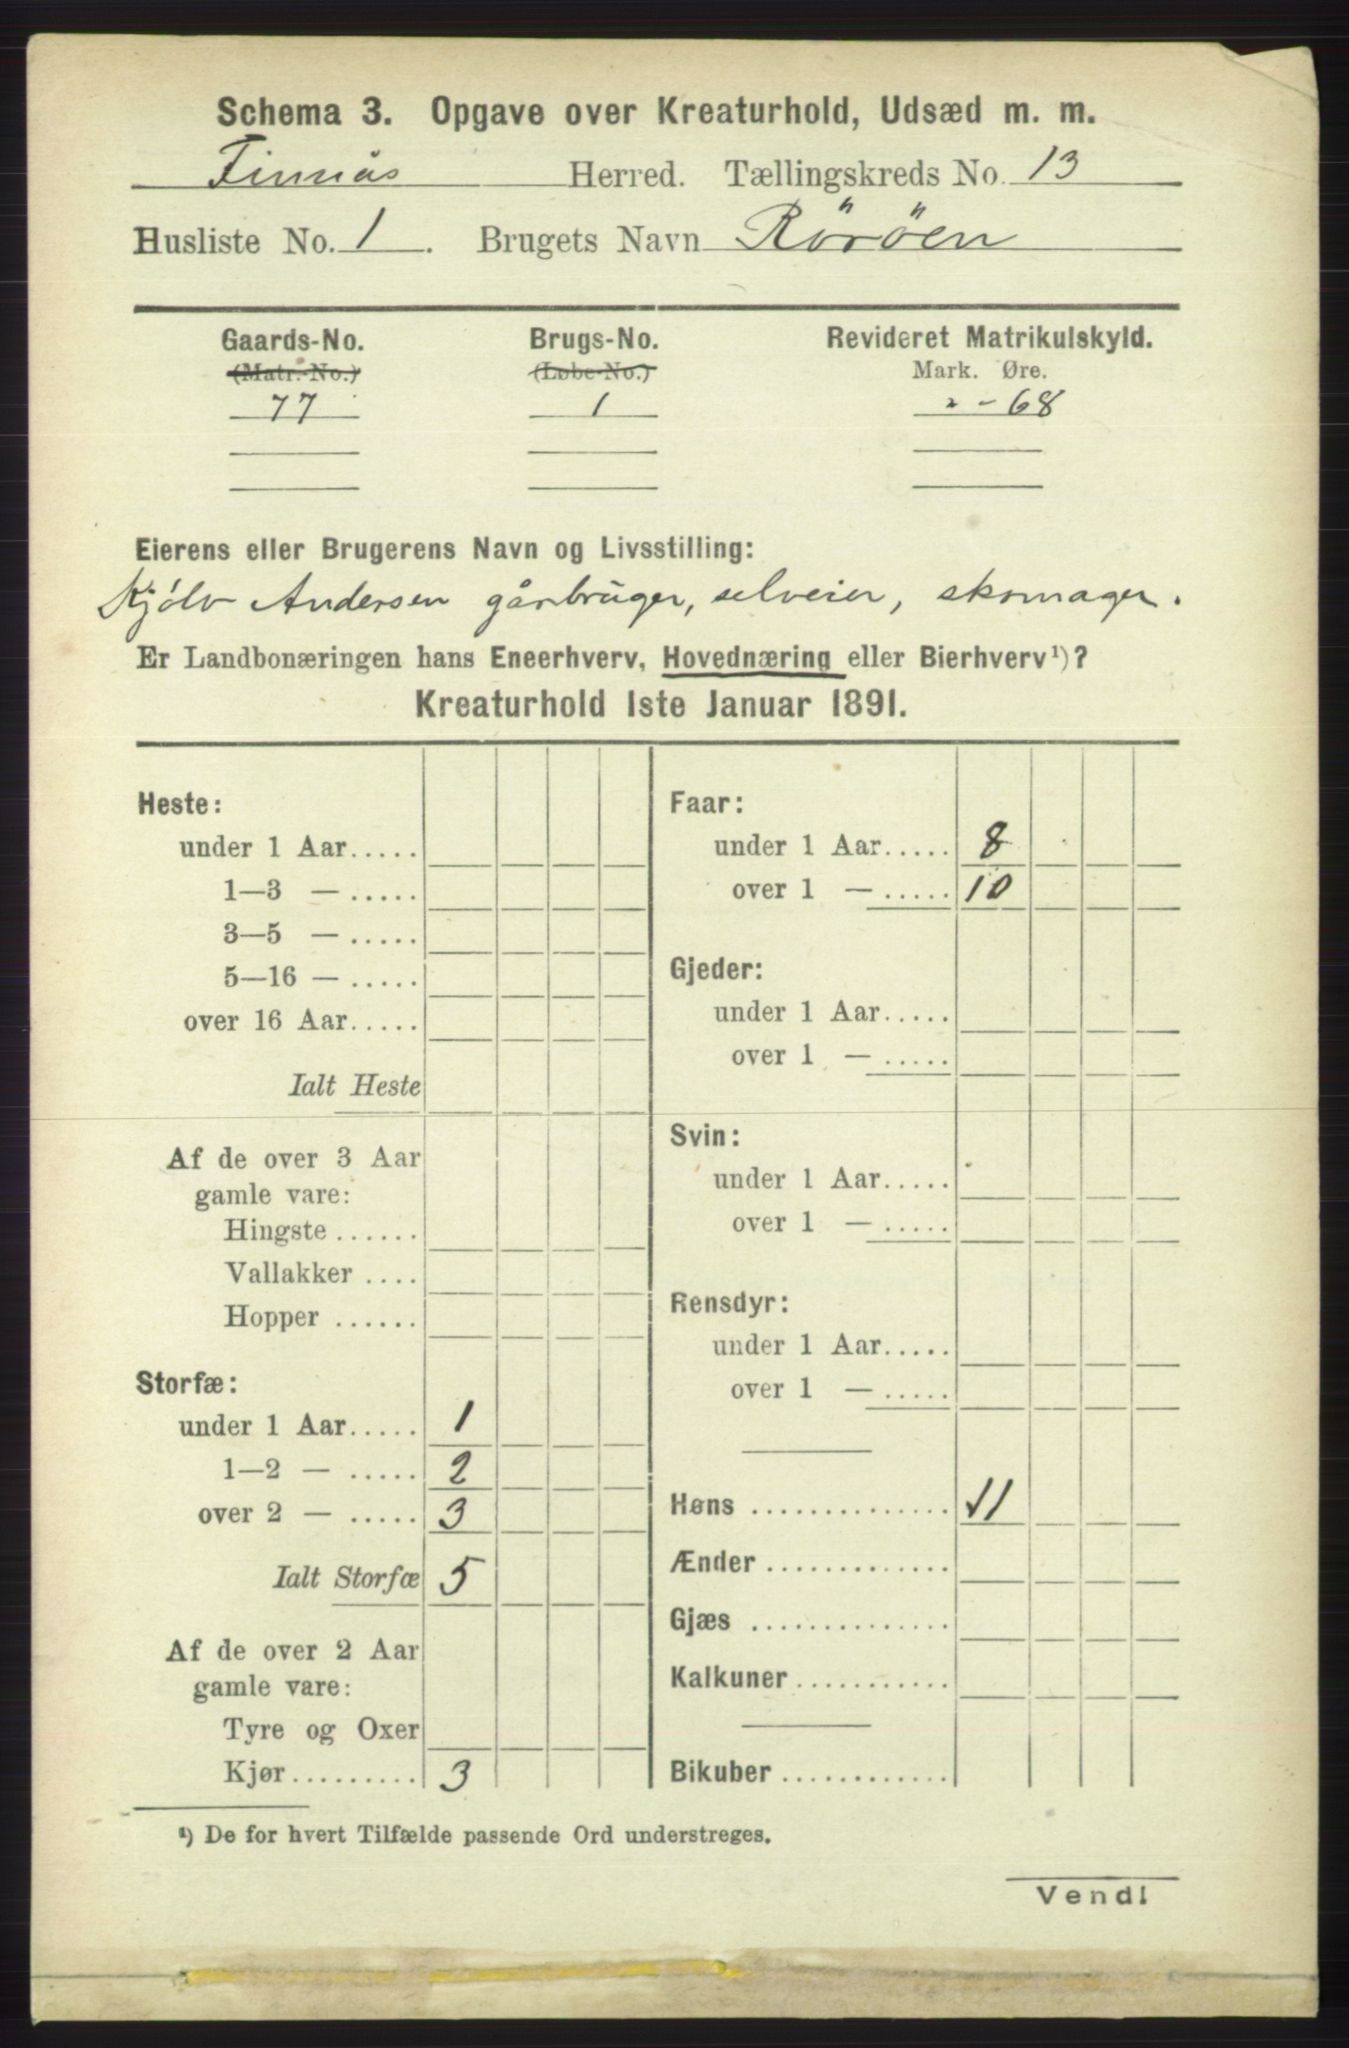 Schema 3. Opgave over Kreaturhold, Udsæd m. m.
Finnås Herred. Tællingskreds No. 13
Husliste No. 1. Brugets Navn Röröen
Gaards-No. Brugs-No. Revideret Matrikulskyld.
(Matr.-No.) (Løbe-No.) Mark. Øre.
77 1 2 - 68
Eierens eller Brugerens Navn og Livsstilling:
Kjølv Andersen gårbruger, selveier, skomager.
Er Landbonæringen hans Eneerhverv, Hovednæring eller Bierhverv¹)?
Kreaturhold 1ste Januar 1891.
Heste:
under 1 Aar.....
1—3 — .....
3—5 — .....
5—16 — .....
over 16 Aar.....
Ialt Heste
Af de over 3 Aar
gamle vare:
Hingste ......
Vallakker ....
Hopper ......
Storfæ:
under 1 Aar..... 1
1—2 — ..... 2
over 2 — ..... 3
Ialt Storfæ 5
Af de over 2 Aar
gamle vare:
Tyre og Oxer
Kjør......... 3
Faar:
under 1 Aar..... 8
over 1 — ..... 10
Gjeder:
under 1 Aar.....
over 1 — .....
Svin:
under 1 Aar.....
over 1 — .....
Rensdyr:
under 1 Aar.....
over 1 — .....
Høns .............. 11
Ænder .............
Gjæs ..............
Kalkuner ...........
Bikuber ............
¹) De for hvert Tilfælde passende Ord understreges.
Vend!